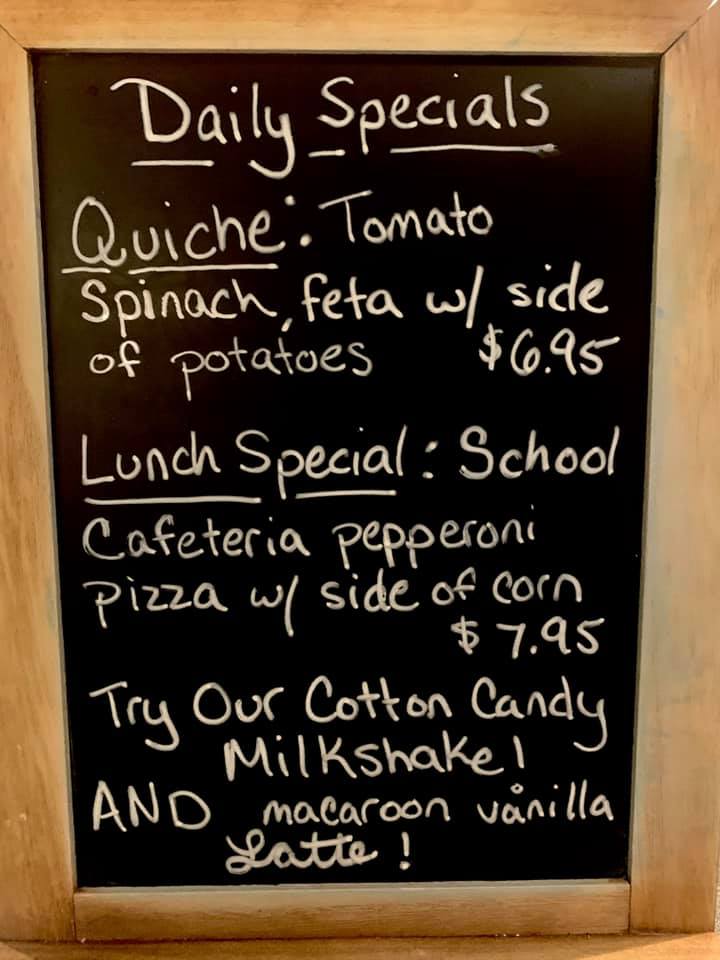 Daily Specials
Quiche: Tomato
Spinach, feta w/ side
of potatoes $6.95
Lunch Special: School
Cafeteria pepperoni
pizza w/ side of corn
$7.95
Try Our Cotton Candy
Milkshake!
AND macaroon vånilla
Latte!